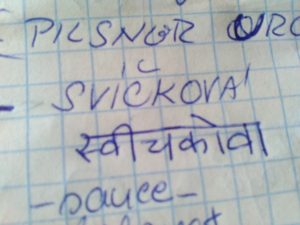 PILSNER URQ
IC
- SVICKOVA'
स्वीचकोवा
- sauce -